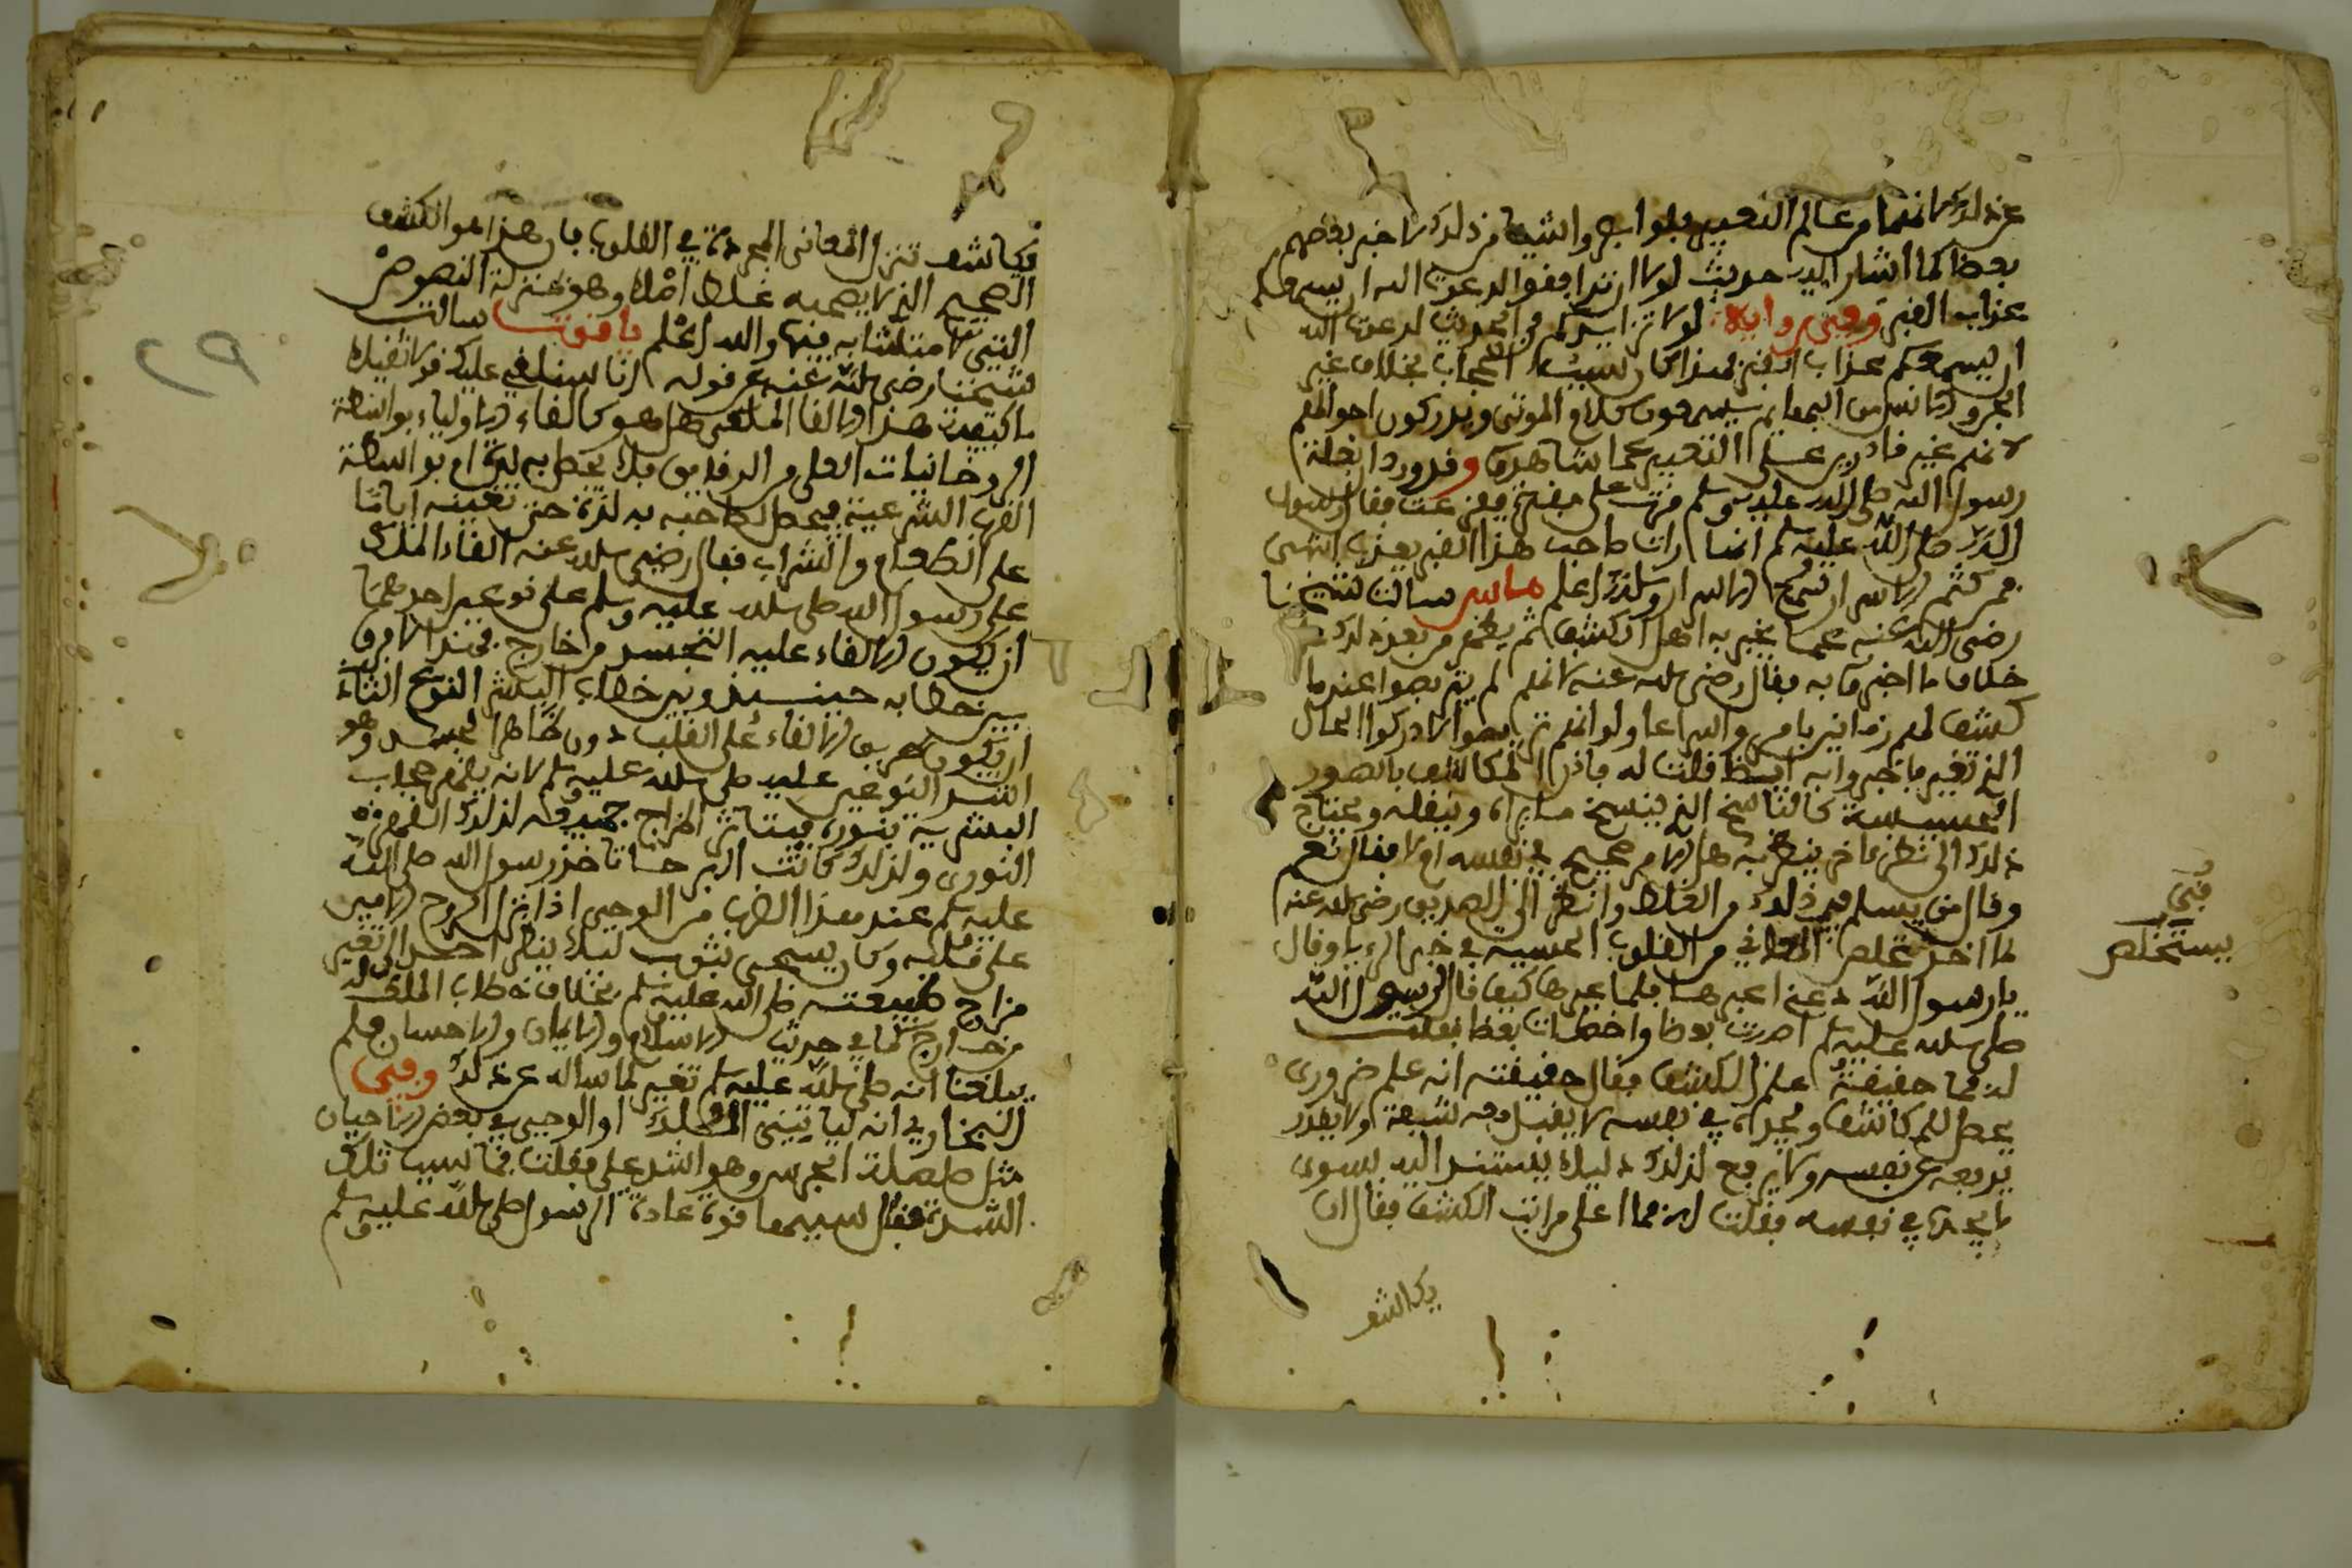 عن ذلك لانهما من عالم التعبير فلو ابصروا شيا من ذلك لاخبر بعضهم
بعضا كما اشار اليه حديث لولا ان تدافنوا لدعوت الله ان يسمعكم
عذاب القبر وفي رواية لولا تزايدكم في الحديث لدعوت الله
ان يسمعكم عذاب القبر فهذا كان سبب الحجاب بخلاف غير
الجن والانس من البهايم يسمعون كلام الموتى ويدركون احوالهم
لانهم غير قادرين على التعبير عما شاهدوه وقد ورد ان بغلة
رسول الله صلى الله عليه وسلم مرت على مقبرة ففزعت فقال رسول
الله صلى الله عليه وسلم انها رات صاحب هذا القبر يعذب انتهى
فمن كتم الاسرار سمع الاسرار والله اعلم ماس سالت شيخنا
رضي الله عنه عما يخبر به اهل الكشف ثم يظهر من بعد ذلك
خلاف ما اخبروا به فقال رضي الله عنه لانهم لم يتربصوا عندما
كشف لهم زمانين بامر واسراعا ولو انهم تربصوا لادركوا الحال
الذي تغير ما خبروا به ايضا قلت له فاذن المكاشف بالصور
الحسية كالناسخ الذي ينسخ ما يراه وينقله ويحتاج
ذلك الى نظر ءاخر ينظر به هل الامر صحيح في نفسه ام لا فقال نعم
وقال من يسلم في ذلك من الغلط وانظر الى الصديق رضي الله عنه
لما اخذ يتخلص المعاني من القلوب الحسية في خبر الرءيا وقال
يا رسول الله دعني اعبرها فلما عبرها كيف قال له رسول الله
صلى الله عليه وسلم اصبت بعضا واخطات بعضا فقلت
له فما حقيقة علم الكشف فقال حقيقته انه علم ضروري
يحصل للمكاشف ويجده في نفسه لا يقبل معه شبهة ولا يقدر
يدفعه عن نفسه ولا يرفع لذلك دليلا يستند اليه سوى
ما يجده في نفسه فقلت له فما اعلى مراتب الكشف فقال ان
يكاشف
في
يستخلص
فيكاشف تنزل المعاني المجردة في القلوب فان هذا هو الكشف
الصحيح الذي لا يصحبه غلط اصلا وهو بمنزلة النصوص
التي لا متشابه فيها والله اعلم ياقوت سالت
شيخنا رضي الله عنه عن قوله انا سنلقي عليك قولا ثقيلا
ما كيفية هذا الالقا الملقى هل هو كالقاء الاولياء بواسطة
الروحانيات العلى من الرقايق فلا يحصل به لذة ام بواسطة
القرب الشرعية فيحصل لصاحبه به لذة حتى تغنيه اياما
على الطعام والشراب فقال رضي الله عنه القاء الملك
على رسول الله صلى الله عليه وسلم على نوعين احدهما
ان يكون الالقاء عليه التجسد من خارج فهذا لا فرق
بين خطابه حينيذ وبين خطاب البشر النوع الثاني
ان يكون طريق الالقاء على القلب دون ظاهر الجسد وهو
اشد النوعين عليه صلى الله عليه وسلم لانه يظهر حجاب
البشرية بنوره فيتاثر المزاج جميعه لذلك الظهور
النوري ولذلك كانت البرحاء تاخذ رسول الله صلى الله
عليه وسلم عند هذا الضرب من الوحي اذا نزل الروح الامين
على قلبه وكان يسجى بثوب ليلا ينظر احد الى تغير
مزاج طبيعته صلى الله عليه وسلم بخلاف خطاب الملك له
من خارج كما في حديث الاسلام والايمان والاحسان فلم
يبلغنا انه صلى الله عليه وسلم تغير لما ساله عن ذلك وفي
البخاري انه لياتيني الملك او الوحي في بعض الاحيان
مثل صلصلة الجرس وهو اشد علي فقلت فما سبب تلك
الشدة فقال سببها قوة عادة الرسول صلى الله عليه وسلم